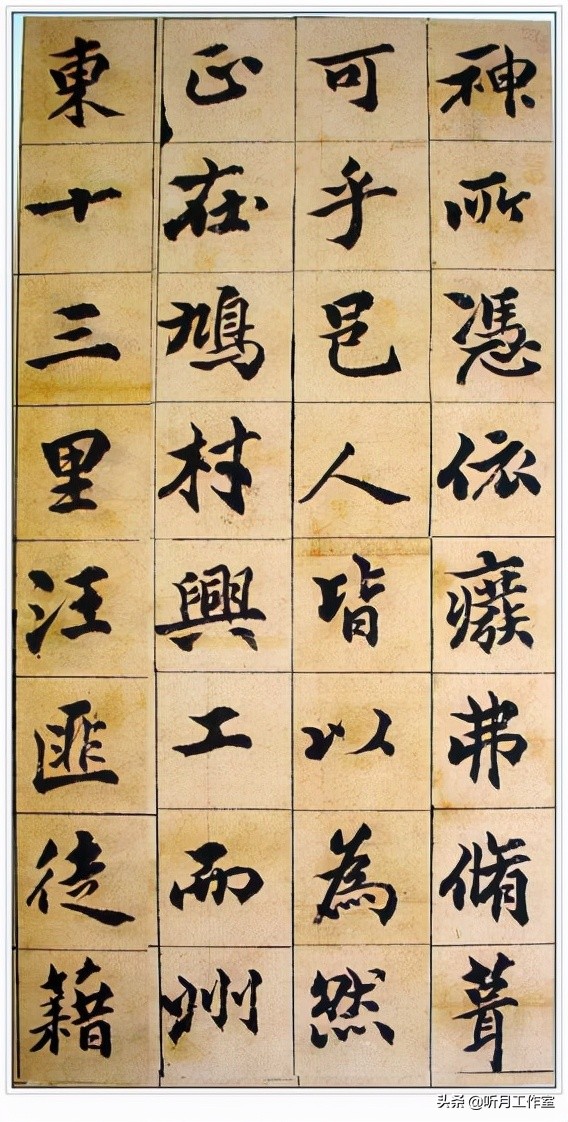 神所憑依癈弗脩葺
可乎邑人皆以為然
正在鳩材興工而州
東十三里汪匪徒藉
头条 @听月工作室